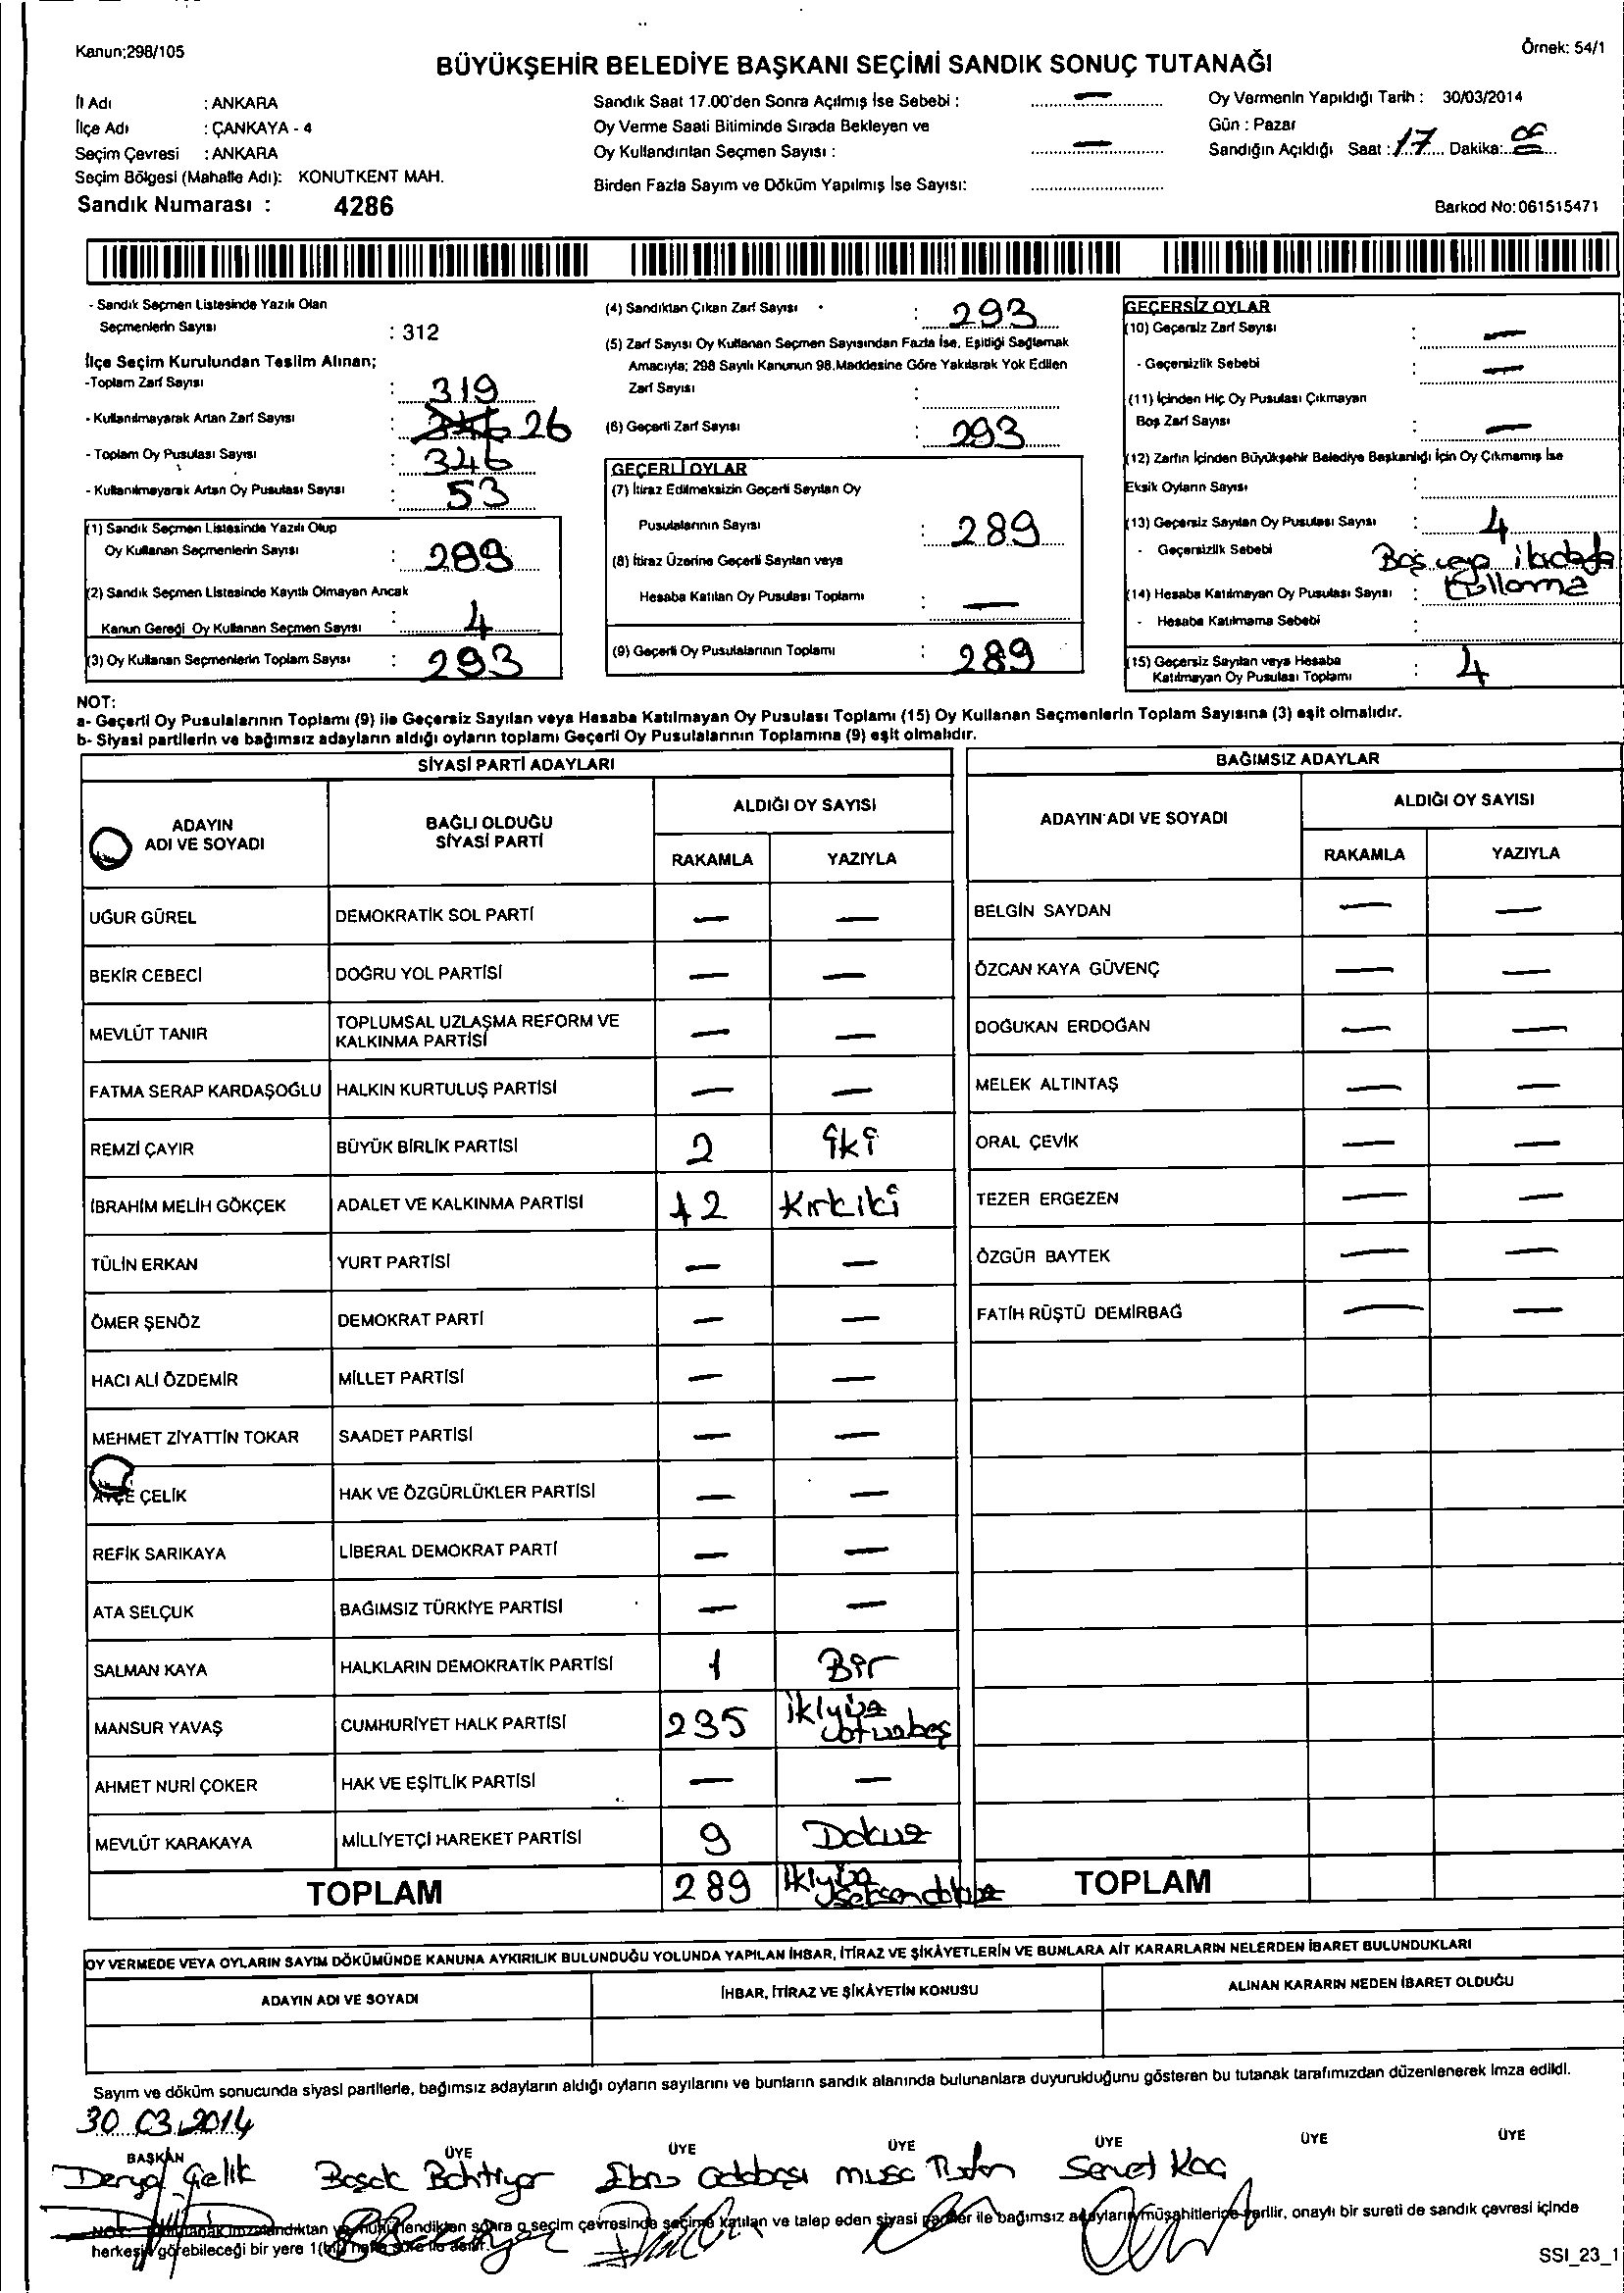 Kanun;298/105
Örnek: 54/1
BÜYÜKŞEHİR BELEDİYE BAŞKANI SEÇİMİ SANDIK SONUÇ TUTANAĞI
İl Adı : ANKARA
İlçe Adı : ÇANKAYA - 4
Seçim Çevresi : ANKARA
Seçim Bölgesi (Mahalle Adı): KONUTKENT MAH.
Sandık Numarası : 4286
Sandık Saat 17.00'den Sonra Açılmış İse Sebebi : —
Oy Verme Saati Bitiminde Sırada Bekleyen ve
Oy Kullandırılan Seçmen Sayısı : —
Birden Fazla Sayım ve Döküm Yapılmış İse Sayısı:
Oy Vermenin Yapıldığı Tarih : 30/03/2014
Gün : Pazar
Sandığın Açıldığı Saat : 17 Dakika:
Barkod No:061515471
- Sandık Seçmen Listesinde Yazılı Olan
Seçmenlerin Sayısı : 312
İlçe Seçim Kurulundan Teslim Alınan;
-Toplam Zarf Sayısı : 319
- Kullanılmayarak Artan Zarf Sayısı : 26
- Toplam Oy Pusulası Sayısı : 346
- Kullanılmayarak Artan Oy Pusulası Sayısı : 53
(1) Sandık Seçmen Listesinde Yazılı Olup
Oy Kullanan Seçmenlerin Sayısı : 289
(2) Sandık Seçmen Listesinde Kayıtlı Olmayan Ancak
Kanun Gereği Oy Kullanan Seçmen Sayısı : 4
(3) Oy Kullanan Seçmenlerin Toplam Sayısı : 293
(4) Sandıktan Çıkan Zarf Sayısı : 293
(5) Zarf Sayısı Oy Kullanan Seçmen Sayısından Fazla İse, Eşitliği Sağlamak
Amacıyla; 298 Sayılı Kanunun 98.Maddesine Göre Yakılarak Yok Edilen
Zarf Sayısı :
(6) Geçerli Zarf Sayısı : 293
GEÇERLİ OYLAR
(7) İtiraz Edilmeksizin Geçerli Sayılan Oy
Pusulalarının Sayısı : 289
(8) İtiraz Üzerine Geçerli Sayılan veya
Hesaba Katılan Oy Pusulası Toplamı : —
(9) Geçerli Oy Pusulalarının Toplamı : 289
GEÇERSİZ OYLAR
(10) Geçersiz Zarf Sayısı : —
- Geçersizlik Sebebi : —
(11) İçinden Hiç Oy Pusulası Çıkmayan
Boş Zarf Sayısı : —
(12) Zarfın İçinden Büyükşehir Belediye Başkanlığı İçin Oy Çıkmamış İse
Eksik Oyların Sayısı :
(13) Geçersiz Sayılan Oy Pusulası Sayısı : 4
- Geçersizlik Sebebi Boş
(14) Hesaba Katılmayan Oy Pusulası Sayısı :
- Hesaba Katılmama Sebebi :
(15) Geçersiz Sayılan veya Hesaba
Katılmayan Oy Pusulası Toplamı : 4
NOT:
a- Geçerli Oy Pusulalarının Toplamı (9) ile Geçersiz Sayılan veya Hesaba Katılmayan Oy Pusulası Toplamı (15) Oy Kullanan Seçmenlerin Toplam Sayısına (3) eşit olmalıdır.
b- Siyasi partilerin ve bağımsız adayların aldığı oyların toplamı Geçerli Oy Pusulalarının Toplamına (9) eşit olmalıdır.
SİYASİ PARTİ ADAYLARI
ADAYIN ADI VE SOYADI
BAĞLI OLDUĞU SİYASİ PARTİ
ALDIĞI OY SAYISI
RAKAMLA YAZIYLA
UĞUR GÜREL DEMOKRATİK SOL PARTİ — —
BEKİR CEBECİ DOĞRU YOL PARTİSİ — —
MEVLÜT TANIR TOPLUMSAL UZLAŞMA REFORM VE KALKINMA PARTİSİ — —
FATMA SERAP KARDAŞOĞLU HALKIN KURTULUŞ PARTİSİ — —
REMZİ ÇAYIR BÜYÜK BİRLİK PARTİSİ 2 iki
İBRAHİM MELİH GÖKÇEK ADALET VE KALKINMA PARTİSİ 42 Kırkiki
TÜLİN ERKAN YURT PARTİSİ — —
ÖMER ŞENÖZ DEMOKRAT PARTİ — —
HACI ALİ ÖZDEMİR MİLLET PARTİSİ — —
MEHMET ZİYATTİN TOKAR SAADET PARTİSİ — —
ÇELİK HAK VE ÖZGÜRLÜKLER PARTİSİ — —
REFİK SARIKAYA LİBERAL DEMOKRAT PARTİ — —
ATA SELÇUK BAĞIMSIZ TÜRKİYE PARTİSİ — —
SALMAN KAYA HALKLARIN DEMOKRATİK PARTİSİ 1 Bir
MANSUR YAVAŞ CUMHURİYET HALK PARTİSİ 235 ikiyüz otuzbeş
AHMET NURİ ÇOKER HAK VE EŞİTLİK PARTİSİ — —
MEVLÜT KARAKAYA MİLLİYETÇİ HAREKET PARTİSİ 9 Dokuz
TOPLAM 289 ikiyüz seksendokuz
BAĞIMSIZ ADAYLAR
ADAYIN ADI VE SOYADI
ALDIĞI OY SAYISI
RAKAMLA YAZIYLA
BELGİN SAYDAN — —
ÖZCAN KAYA GÜVENÇ — —
DOĞUKAN ERDOĞAN — —
MELEK ALTINTAŞ — —
ORAL ÇEVİK — —
TEZER ERGEZEN — —
ÖZGÜR BAYTEK — —
FATİH RÜŞTÜ DEMİRBAĞ — —
TOPLAM
OY VERMEDE VEYA OYLARIN SAYIM DÖKÜMÜNDE KANUNA AYKIRILIK BULUNDUĞU YOLUNDA YAPILAN İHBAR, İTİRAZ VE ŞİKÂYETLERİN VE BUNLARA AİT KARARLARIN NELERDEN İBARET BULUNDUKLARI
ADAYIN ADI VE SOYADI
İHBAR, İTİRAZ VE ŞİKÂYETİN KONUSU
ALINAN KARARIN NEDEN İBARET OLDUĞU
Sayım ve döküm sonucunda siyasi partilerle, bağımsız adayların aldığı oyların sayılarını ve bunların sandık alanında bulunanlara duyurulduğunu gösteren bu tutanak tarafımızdan düzenlenerek imza edildi.
30.03.2014
BAŞKAN ÜYE ÜYE ÜYE ÜYE ÜYE ÜYE
Derya Çelik Başak Bahtiyar Ebru Musa Servet Koç
NOT: Bu tutanak imzalandıktan ve mühürlendikten sonra o seçim çevresinde seçime katılan ve talep eden siyasi partiler ile bağımsız adayların müşahitlerine verilir, onaylı bir sureti de sandık çevresi içinde
herkesin görebileceği bir yere 1(bir) hafta süre ile asılır.
SSI_23_1